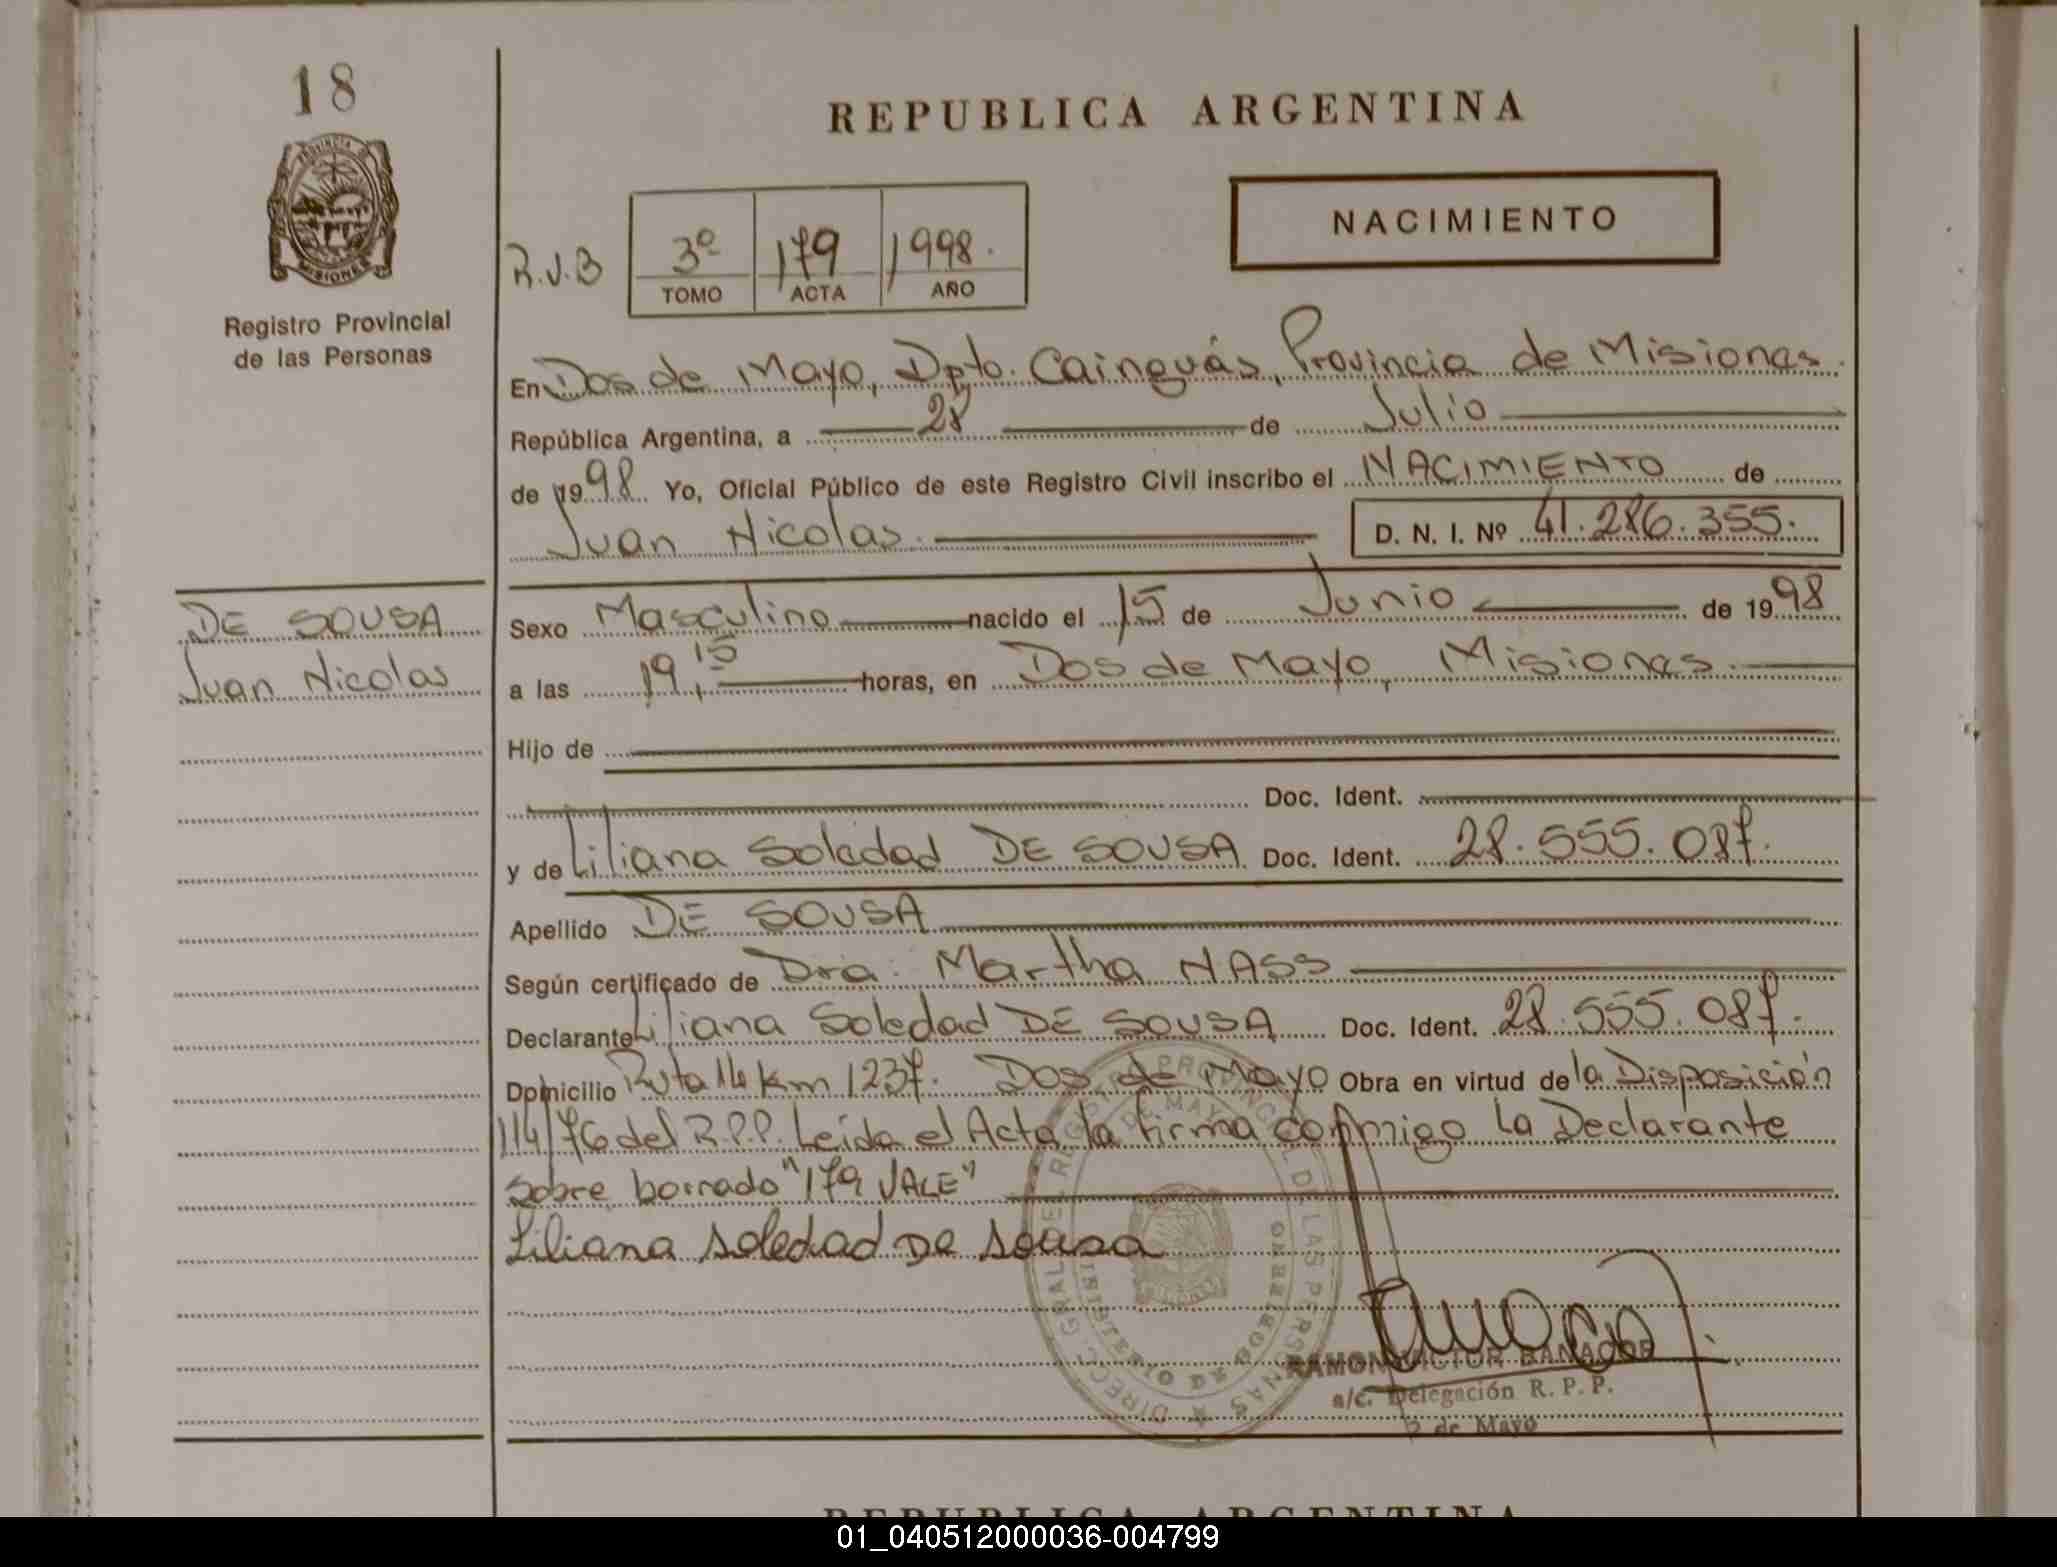 18
PROVINCIA DE
MISIONES
Registro Provincial
de las Personas
REPUBLICA ARGENTINA
NACIMIENTO
R.V.B
3º 179 1998.
TOMO ACTA AÑO
En Dos de Mayo, Dpto. Cainguás, Provincia de Misiones.
República Argentina, a 28 de Julio
de 1998 Yo, Oficial Público de este Registro Civil inscribo el NACIMIENTO de
Juan Nicolas. D. N. I. Nº 41.286.355.
DE SOUSA
Juan Nicolas
Sexo Masculino nacido el 15 de Junio de 1998
a las 19,15 horas, en Dos de Mayo, Misiones.
Hijo de
Doc. Ident.
y de Liliana Soledad DE SOUSA Doc. Ident. 28.555.087.
Apellido DE SOUSA
Según certificado de Dra. Martha NASS
Declarante Liliana Soledad DE SOUSA Doc. Ident. 28.555.087.
Domicilio Ruta 14 Km 1237. Dos de Mayo Obra en virtud de la Disposición
114/76 del R.P.P. Leída el Acta la firma conmigo la Declarante
sobre borrado "179 VALE"
Liliana Soledad De Sousa
DIRECC. GRAL DEL REGISTRO PROVINCIAL DE LAS PERSONAS
DE MAYO
MINISTERIO DE GOBIERNO
RAMON VICTOR
a/c. Delegación R. P. P.
2 de Mayo
REPUBLICA ARGENTINA
01_040512000036-004799